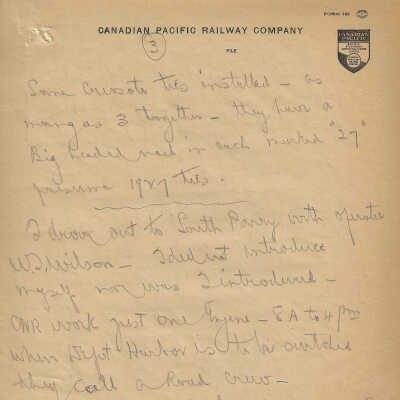 FORM 103
CANADIAN PACIFIC RAILWAY COMPANY
3
FILE
CANADIAN
PACIFIC
Some creosote ties installed – as
many as 3 together – they have a
Big headed nail in each marked "27"
presume 1927 ties.
I drove out to South Parry with operator
W.J. Wilson – I did not introduce
myself nor was I introduced –
CNR work just one Engine – 8 A to 4 pm
when Dept Harbor is to be switched
they call a Road crew –